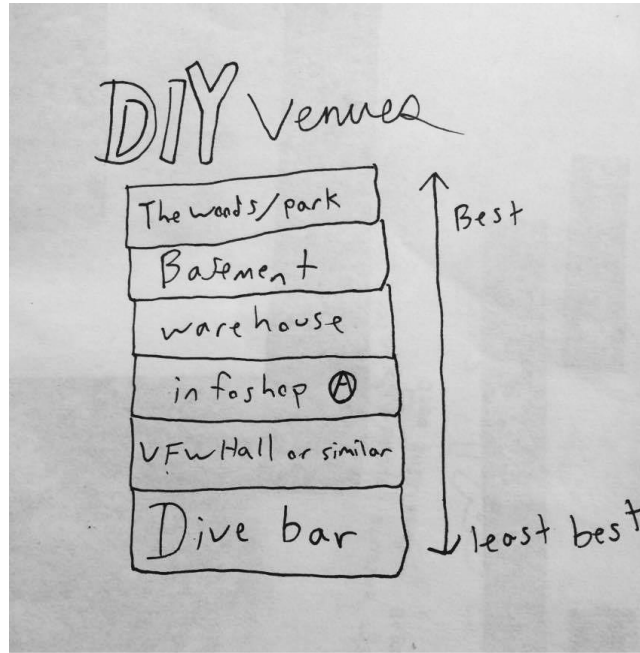 DIY Venues
The woods/park
Best
Basement
warehouse
infoshop Ⓐ
VFW Hall or similar
Dive bar
least best